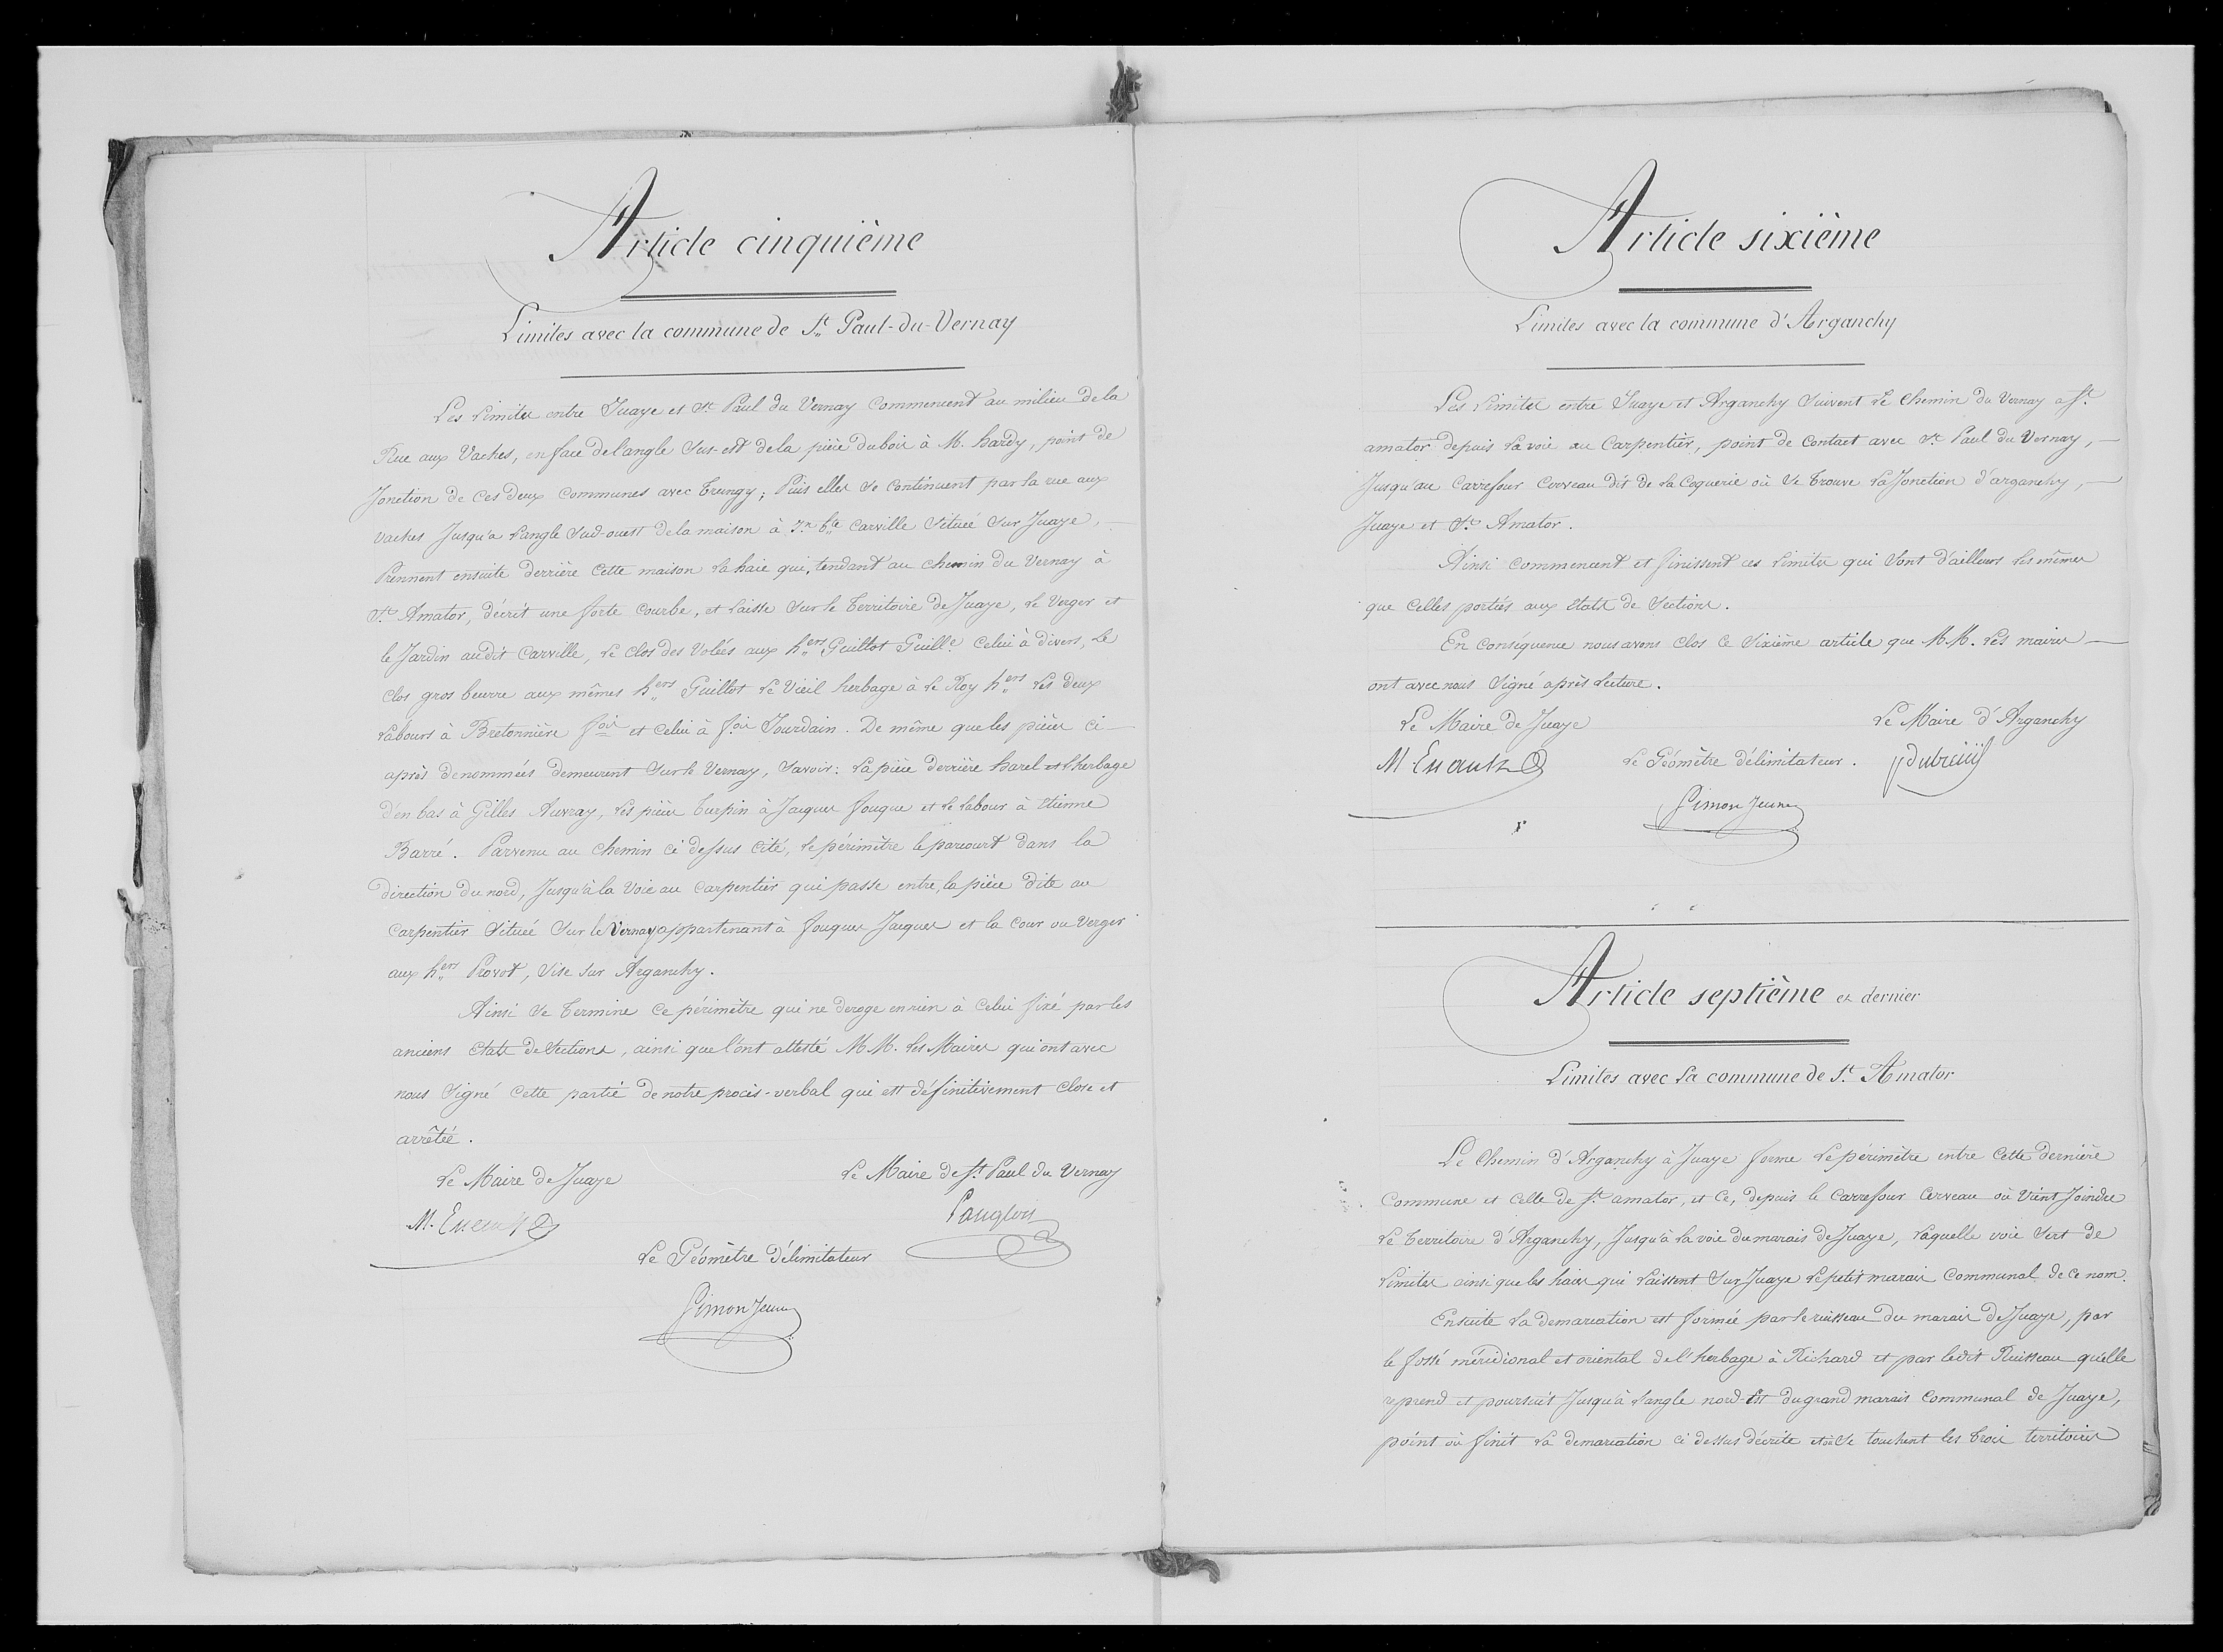 Article cinquième
Limites avec la commune de St. Paul-du-Vernay
Les Limites entre Juaye et St. Paul du Vernay commencent au milieu de la
Rue aux Vaches, en face de l'angle Sus-est de la pièce du bois à M. hardy, point de
Jonction de ces deux communes avec Trungy; Puis elles se continuent par la rue aux
vaches Jusqu'a l'angle Sud-ouest de la maison à Carville Située Sur Juaye,
Prennent ensuite derrière cette maison la haie qui, tendant au chemin du Vernay à
St. Amator, décrit une forte courbe, et laisse sur le territoire de Juaye, le Verger et
le Jardin audit Carville, le clos des Volées aux hers Guillot Guille. Celui à divers, le
clos gros beurre aux mêmes hers Guillot le Vieil herbage à le Roy hers les deux
labours à Bretonnière fois et celui à fois Jourdain. De même que les pièces ci-
après denommées demeurent sur le Vernay, Savoir: La pièce derrière harel et l'herbage
d'en bas à Gilles Auvray, les pièces Turpin à Jacques fouque et le labour à Etienne
Barré. Parvenu au chemin ci dessus cité, le périmètre le parcourt dans la
direction du nord, Jusqu'à la Voie au carpentier qui passe entre, la pièce dite au
carpentier située sur le Vernay appartenant à fouques Jacques et la cour ou verger
aux hers Provot, sise sur Arganchy.
Ainsi se termine ce périmètre qui ne deroge en rien à celui fixé par les
anciens etats de sections, ainsi que l'ont attesté M.M. les Maires qui ont avec
nous Signé cette partie de notre procès-verbal qui est définitivement close et
arrêtée.
Le Maire de Juaye Le Maire de St. Paul du Vernay
M. Enault Langlois
Le Géomètre délimitateur
Simon Jeune
Article sixième
Limites avec la commune d'Arganchy
Les Limites entre Juaye et Arganchy Suivent le Chemin du Vernay a St.
amator depuis la voie au Carpentier, point de contact avec St. Paul du Vernay,
Jusqu'au Carrefour Cerveau dit de la Coquerie où se trouve la Jonction d'arganchy,
Juaye et St. Amator.
Ainsi commencent et finissent ces limites qui sont d'ailleurs les mêmes
que celles portées aux etats de Sections.
En conséquence nous avons clos ce Sixième article que M.M. les maires
ont avec nous Signé après lecture.
Le Maire de Juaye Le Maire d'Arganchy
M. Enault Le Géomètre délimitateur. Dubreuil
Simon Jeune
Article septième et dernier
Limites avec la commune de St. Amator
Le Chemin d'Arganchy à Juaye forme le périmètre entre cette dernière
Commune et celle de St. amator, et ce, depuis le carrefour Cerveau où vient Joindre
le territoire d'Arganchy, Jusqu'à la voie du marais de Juaye, laquelle voie sert de
limites ainsi que les haies qui laissent Sur Juaye le petit marais Communal de ce nom.
Ensuite la demarcation est formée par le ruisseau du marais de Juaye, par
le fossé méridional et oriental de l'herbage à Richard et par ledit Ruisseau qu'elle
reprend et poursuit Jusqu'à l'angle nord-Est du grand marais Communal de Juaye,
point où finit la demarcation ci dessus décrite et où se touchent les trois territoires